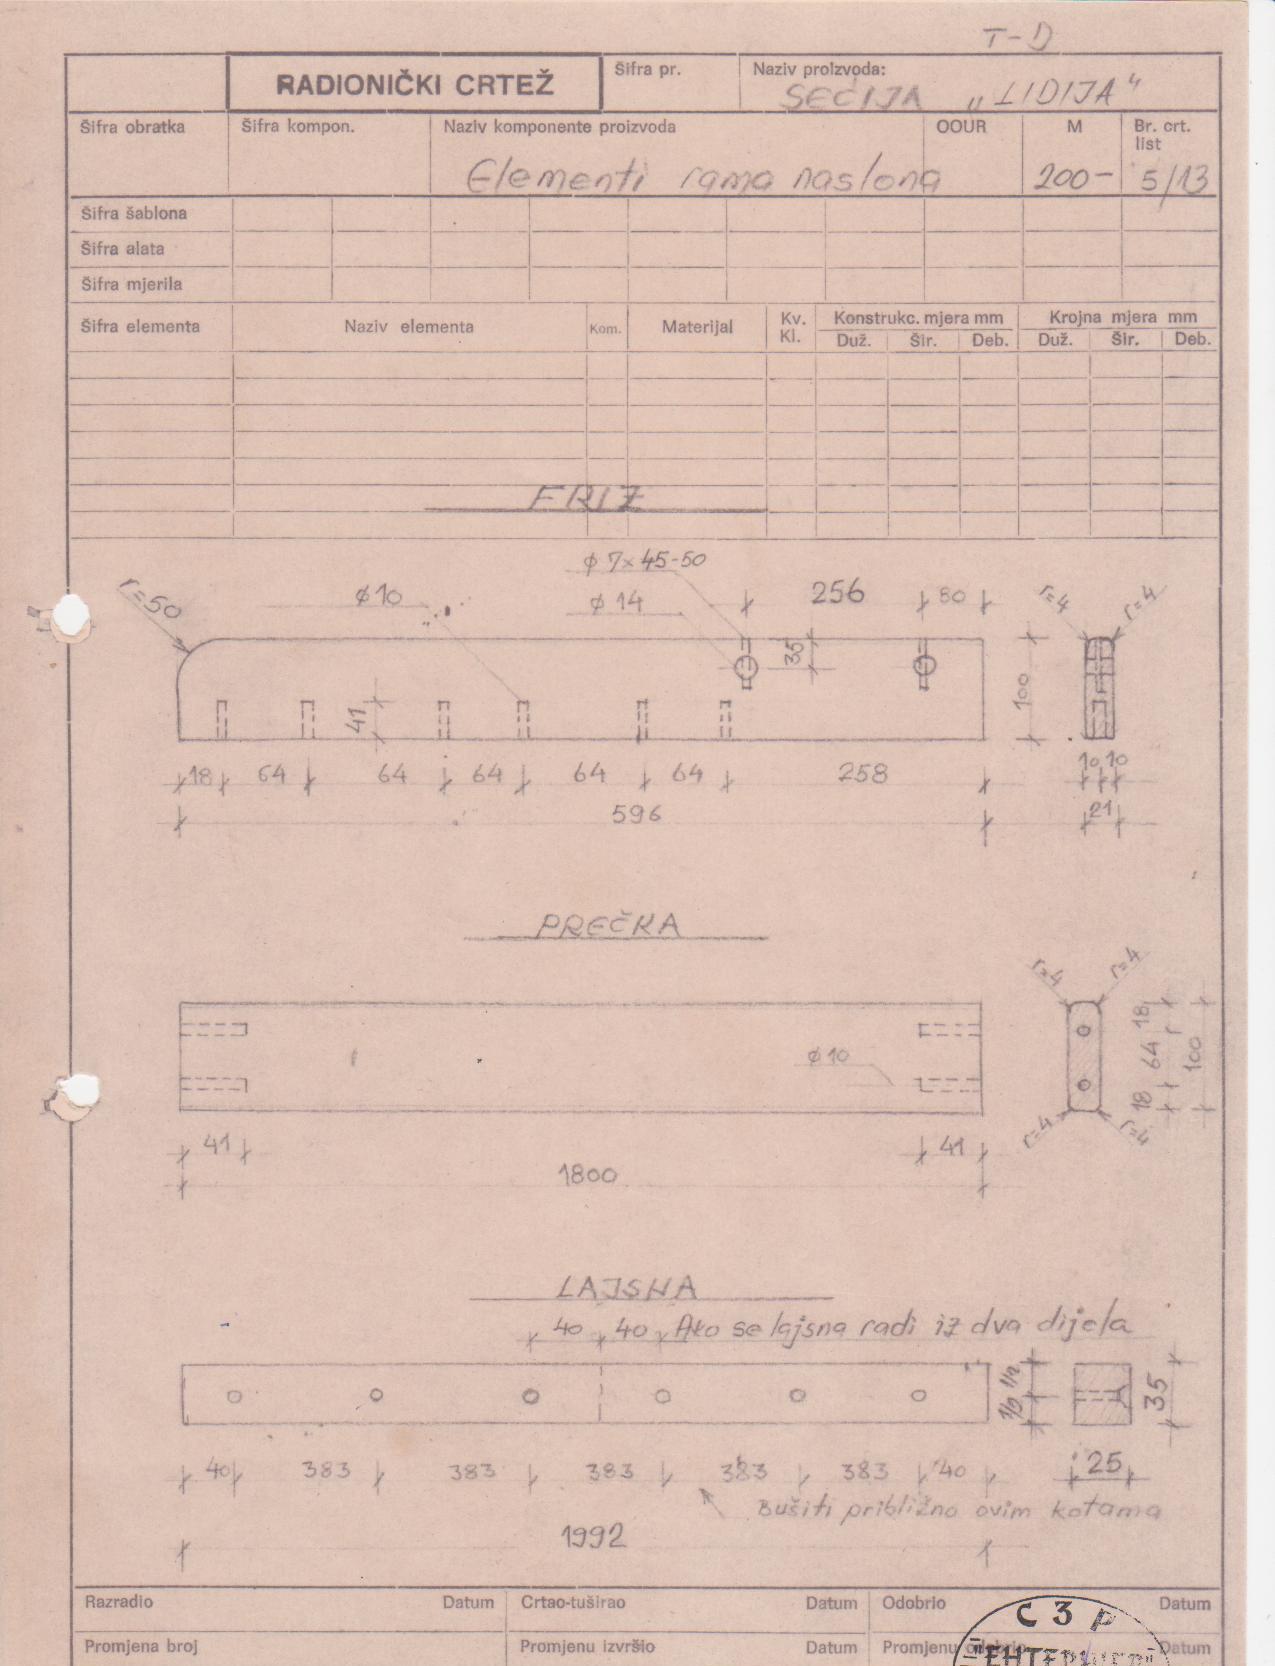 T-D
RADIONIČKI CRTEŽ
Šifra pr.
Naziv proizvoda:
SEĆIJA „LIDIJA"
Šifra obratka
Šifra kompon.
Naziv komponente proizvoda
OOUR
M
Br. crt.
list
Elementi rama naslona
200-
5/13
Šifra šablona
Šifra alata
Šifra mjerila
Šifra elementa
Naziv elementa
Kom.
Materijal
Kv.
Kl.
Konstrukc. mjera mm
Krojna mjera mm
Duž. Šir. Deb. Duž. Šir. Deb.
FRIZ
φ 7x45-50
r=50
φ10
φ 14
256
80
r=4
r=4
35
41
100
18 64 64 64 64 64 258
10 10
596
21
PREČKA
r=4
r=4
φ10
18
64
18
100
41
41
r=4
r=4
1800
LAJSNA
40 40 Ako se lajsna radi iz dva dijela
1/2 1/2
35
40 383 383 383 383 383 40
25
Bušiti približno ovim kotama
1992
Razradio Datum Crtao-tuširao Datum Odobrio Datum
Promjena broj Promjenu izvršio Datum Promjenu odobrio Datum
СЗР
"ЕНТЕРИЈЕР"